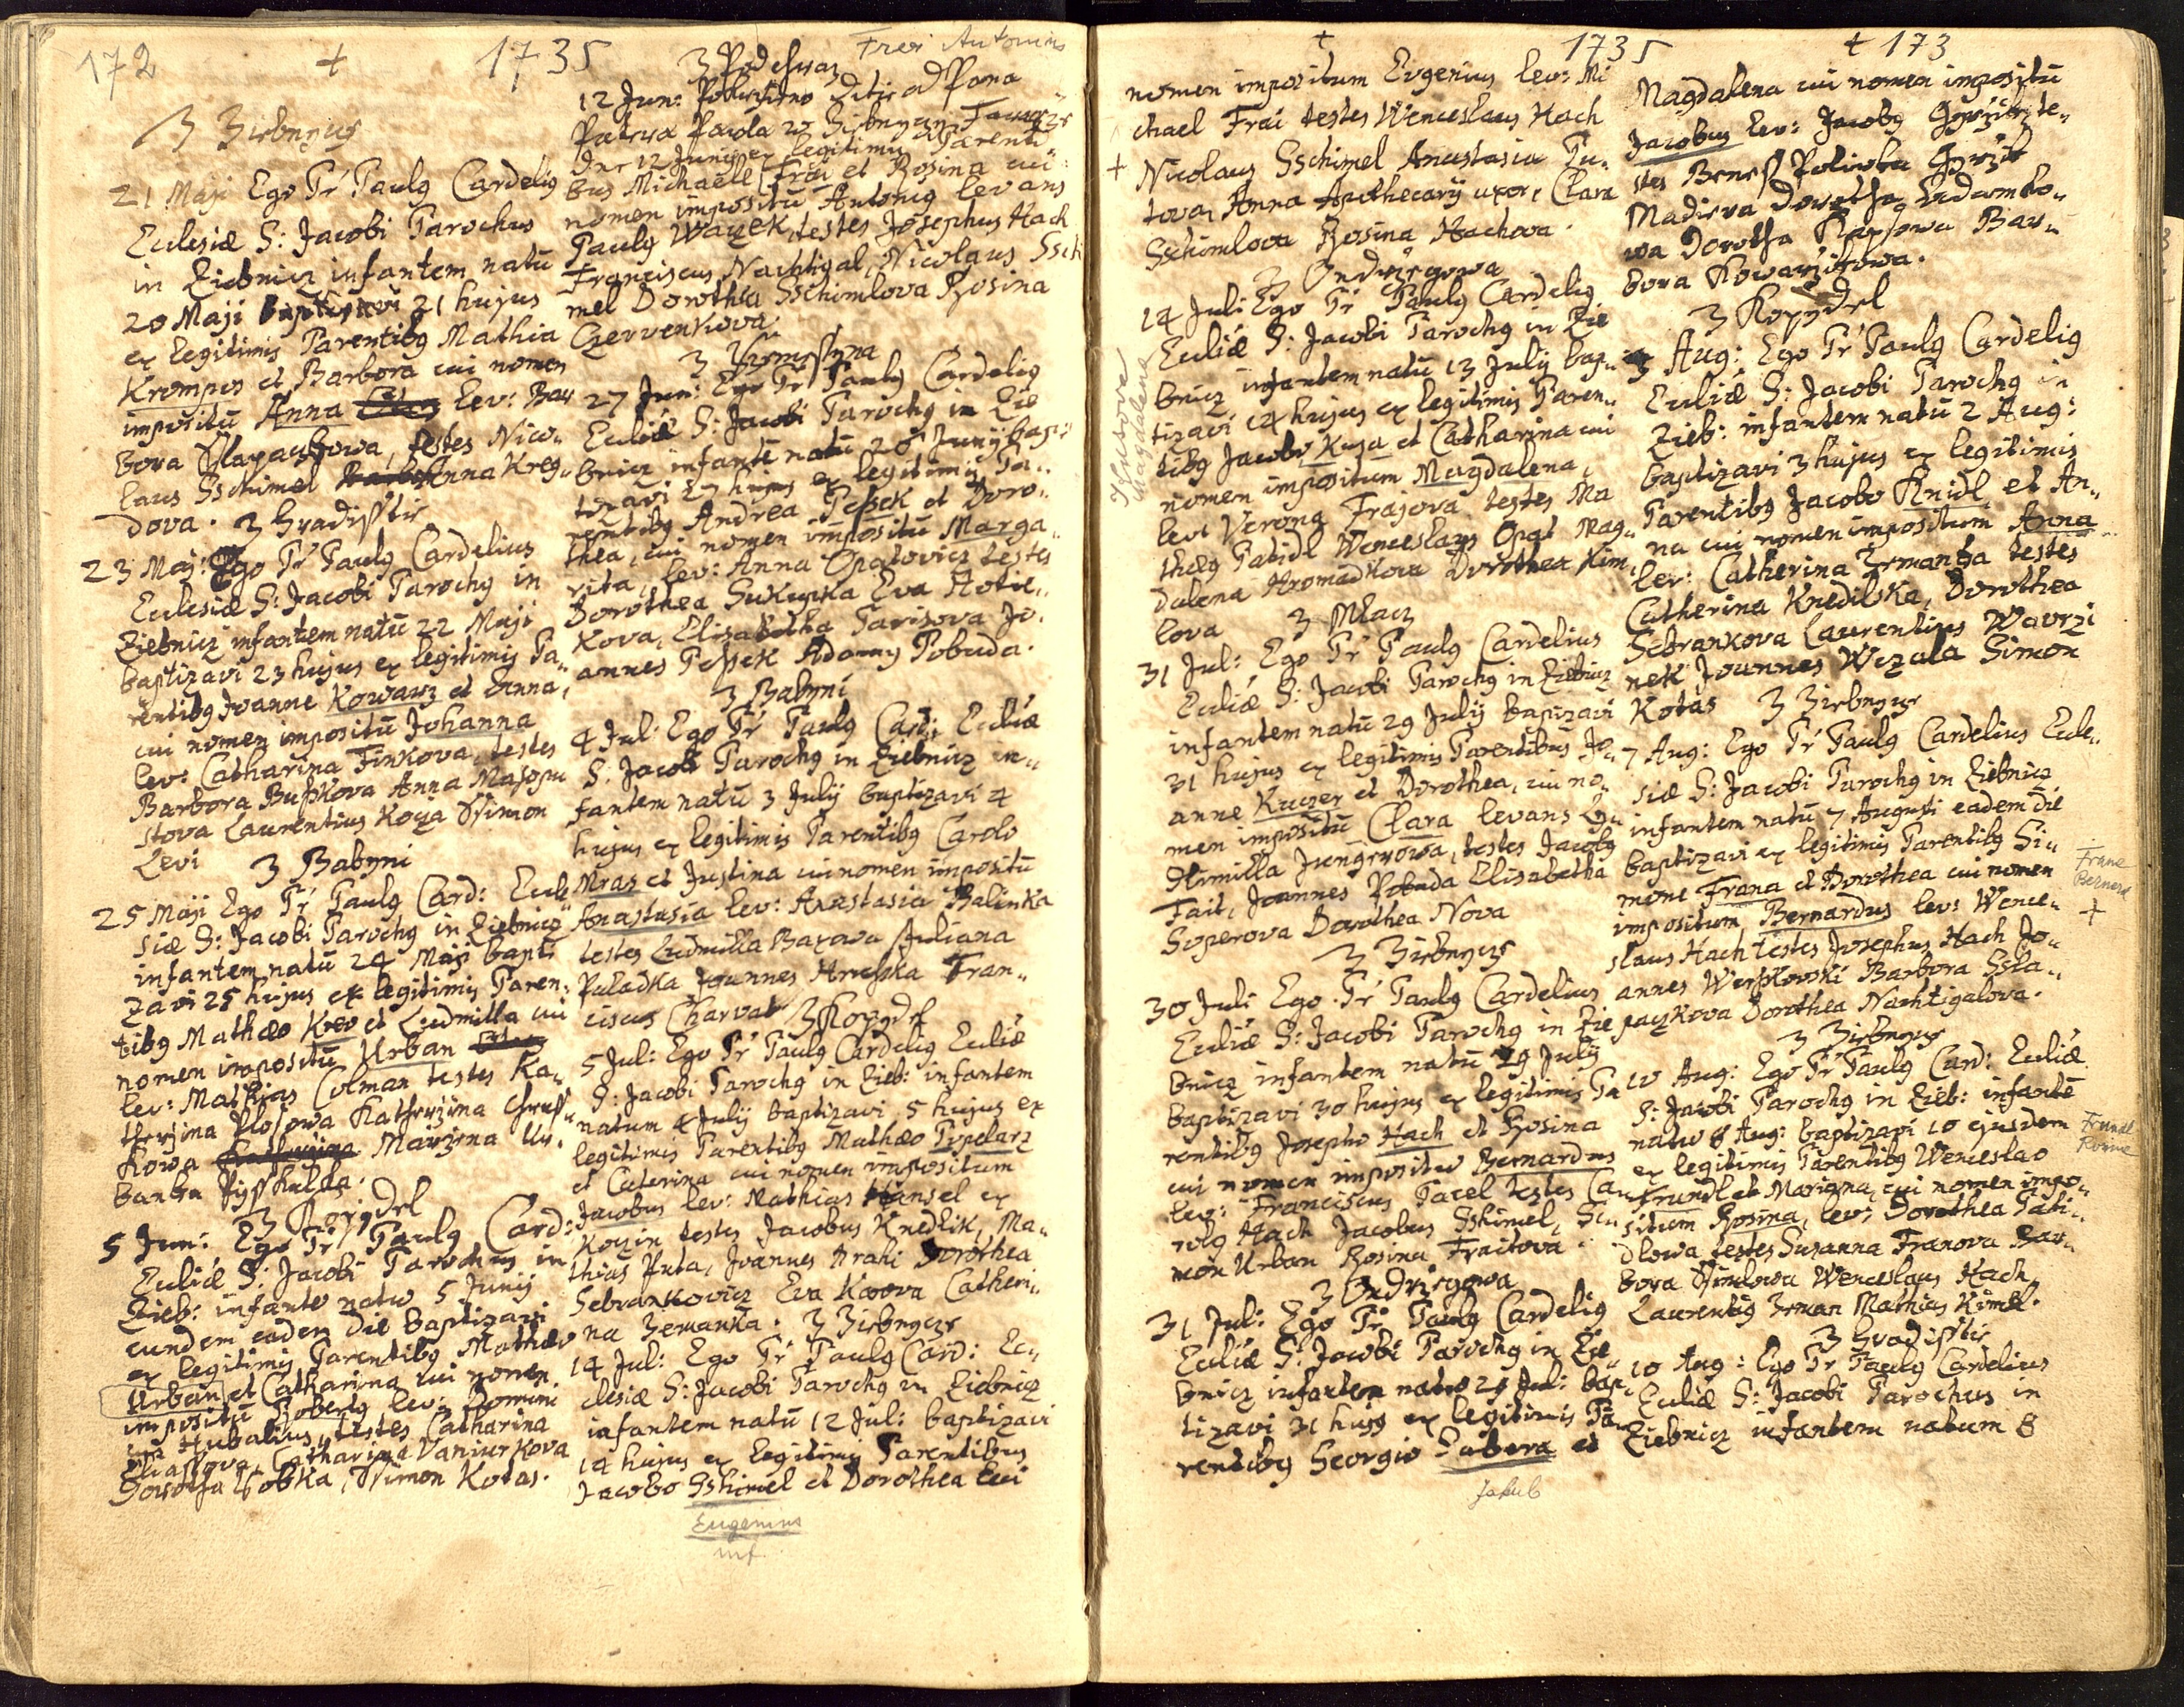 172 + 1735
3 Zirbnycz
21 Maji Ego Fr Paulg Cardelig
Eclesiæ S: Jacobi Parochus
in Ziebnicz infantem natū
20 Maji baptizavi 21 hujus
ex legitimis Parentibg Mathia
Krompus et Barbora cui nomen
impositū Anna lev: Bar
bora testes Nico„
laus Sschimel Anna Kreg„
dova. 3 Hradisstie
23 Maj: Ego Fr Paulg Cardelius
Eclesiæ S: Jacobi Parochg in
Ziebnicz infantem natū 22 Maji
baptizavi 23 hujus ex legitimis Pa„
rentibg Joanne Kowarz et Anna,
cui nomen impositū Johanna
lev: Catharina Finkova, testes
Barbora Busskova Anna Masopu
stova Laurentius Koza Ssimon
Levi 3 Babyni
25 Maji Ego Fr Paulg Card: Ecle
siæ S: Jacobi Parochg in Ziebnicz
infantem natū 24 Maji bapti
zavi 25 hujus ex legitimis Paren„
tibg Mathæo Krev et Ludmilla cui
nomen impositū Urban
lev: Mathias Colman testes Ka„
therzina Plosowa Katherzina
kowa Marzena Ur„
banka
3 Kozydel
5 Jun: Ego Fr Paulg Card:
Ecliæ S: Jacobi Parochus in
Zieb: infante natū 5 Junij
eundem eadem die baptizavi
ex legitimis Parentibg Mathæo
Urban et Catharina cui nomen
impositū Robertg lev: Domini
cg Hubalius, testes Catharina
Eliassova, Catharina Vaniurkova
Dorotha Ssobka, Ssimon Kotas.
Frei Antonius
3 Podchraz
12 Jun:
Patera Pavla z Zirbnycz
Dne 12 Junij ex legitimis Parenti
bus Michaele Frei et Rosina cui
nomen impositū Antonig levans
Paulg Waczek, testes Josephus Hach
Franciscus Nachtigal, Nicolaus Ssch
mel Dorothea Sschimlova Rosina
Czervenkova
27 Jun: Ego Fr Paulg Cardelig
Ecliæ S: Jacobi Parochg in Zie
bnicz infantē natū 26 Junij bap„
tizavi 27 hujus ex legitimis Pa„
rentibg Andrea Pessek et Doro„
thea, cui nomen impositū Marga„
rita, lev: Anna Opatovicz testes
Dorothea Sukupka Eva Hotie„
kova, Elisabetha Parisova Jo„
annes Pessek Adamg Pobuda.
3 Babyni
4 Jul: Ego Fr Paulg Card: Ecliæ
S: Jacobi Parochg in Ziebnicz in„
fantem natū 3 Julij baptizavi 4
hujus ex legitimis Parentibg Carolo
Mraz et Justina cui nomen impositū
Anastasia lev: Anastasia Balinka
testes Ludmilla Baxava Juliana
Puladka Joannes Hrusska Fran„
ciscus Charvat 3 Kozydel
5 Jul: Ego Fr Paulg Cardelig Ecliæ
S: Jacobi Parochg in Zieb: infantem
natum 4 Julij baptizavi 5 hujus ex
legitimis Parentibg Mathæo Typelarz
et Caterina cui nomen impositum
Jacobus lev: Mathias Hansel ex
Kozin testes Jacobus Knedlik, Ma„
thias Puta, Joannes Drahi Dorothea
Sebrankovicz Eva Karova Catheri„
na Zemanka. 3 Zirbnycz
14 Jul: Ego Fr Paulg Card: Ec„
clesiæ S: Jacobi Parochg in Ziebnicz
infantem natū 12 Jul: baptizavi
14 hujus ex legitimis Parentibus
Jacobo Sshimel et Dorothea cui
Eugenius
inf.
+ 1735 + 173
nomen impositum Eugenius lev: Mi
chael Frai testes Wenceslaus Hach
+ Nicolaus Sschimel Anastasia Pu„
tova, Anna Apothecarij uxor, Clara
Sschimlova Rosina Hachova.
3 Ondrzegowa
14 Juli Ego Fr Paulg Cardelig
Ecliæ S: Jacobi Parochg in Zie
bnicz infantem natū 13 Julij bap„
tizavi 14 hujus ex legitimis Paren„
tibg Jacobo Kuza et Catharina cui
nomen impositum Magdalena,
levt Verona Frajova testes Ma
thæg Patidl Wenceslaus Opat Mag„
dalena Hromadkova Dorothea Kim„
lova 3 Mlacz
Magdalena
31 Jul: Ego Fr Paulg Cardelius
Ecliæ S: Jacobi Parochg in Ziebnicz
infantem natū 29 Julij baptizavi
31 hujus ex legitimis Parentibus Jo„
anne Kuczer et Dorothea, cui no„
men impositū Clara levans Lu„
dimilla Jungrowa, testes Jacobg
Fait, Joannes Pobuda Elisabetha
Soperova Dorothea Nova
3 Zirbnycz
30 Juli Ego Fr Paulg Cardelius
Ecliæ S: Jacobi Parochg in Zie
bnicz infantem natū 29 Julij
baptizavi 30 hujus ex legitimis Pa
rentibg Josepho Hach et Rosina
cui nomen impositū Bernardus
lev: Franciscus Pacel testes Ca„
rolg Hach Jacobus Sshimel, Si„
mon Urban Rosina Fraitova
3 Ondrzegowa
31 Jul: Ego Fr Paulg Cardelig
Ecliæ S: Jacobi Parochg in Zie
bnicz infantem natū 29 Jul: bap„
tizavi 31 hujg ex legitimis Pa„
rentibg Georgio Lubera et
Jakub
Magdalena cui nomen impositū
Jacobus lev: Jacobg te„
stes Beness Polivka
Madiera Dorotha Ludamko„
wa Dorotha Kapsowa Bar„
bora Kowarzikowa.
3 Kozydel
3 Aug: Ego Fr Paulg Cardelig
Ecliæ S: Jacobi Parochg in
Zieb: infantem natū 2 Aug:
baptizavi 3 hujus ex legitimis
Parentibg Jacobo Knidl et An„
na cui nomen impositum Anna
lev: Catherina Zemanka testes
Catherina Knedilska, Dorothea
Sebrankova Laurentius Wavrzi
nek Joannes Wezala Simon
Kotas 3 Zirbnycz
7 Aug: Ego Fr Paulg Cardelius Ecle„
siæ S: Jacobi Parochg in Ziebnicz
infantem natū 7 Augusti eadem die
baptizavi ex legitimis Parentibg Si„
mone Frana et Dorothea cui nomen
impositum Bernardus lev: Wence„
slaus Hach testes Josephus Hach Jo„
annes Wersskovski Barbora Ssla„
paczkova Dorothea Nachtigalova.
Frane
Bernard
+
3 Zirbnycz
10 Aug: Ego Fr Paulg Card: Ecliæ
S: Jacobi Parochg in Zieb: infantē
natū 8 Aug: baptizavi 10 ejusdem
ex legitimis Parentibg Wenceslao
Frundl et Marigna, cui nomen impo„
situm Rosina, lev: Dorothea Pati„
dlowa testes Susanna Franova Bar„
bora Ssimlowa Wenceslaus Hach
Laurentig Zeman Mathias Kimel.
Frundl
Rosine
3 Hradisstie
10 Aug: Ego Fr Paulg Cardelius
Ecliæ S: Jacobi Parochus in
Ziebnicz infantem natum 8